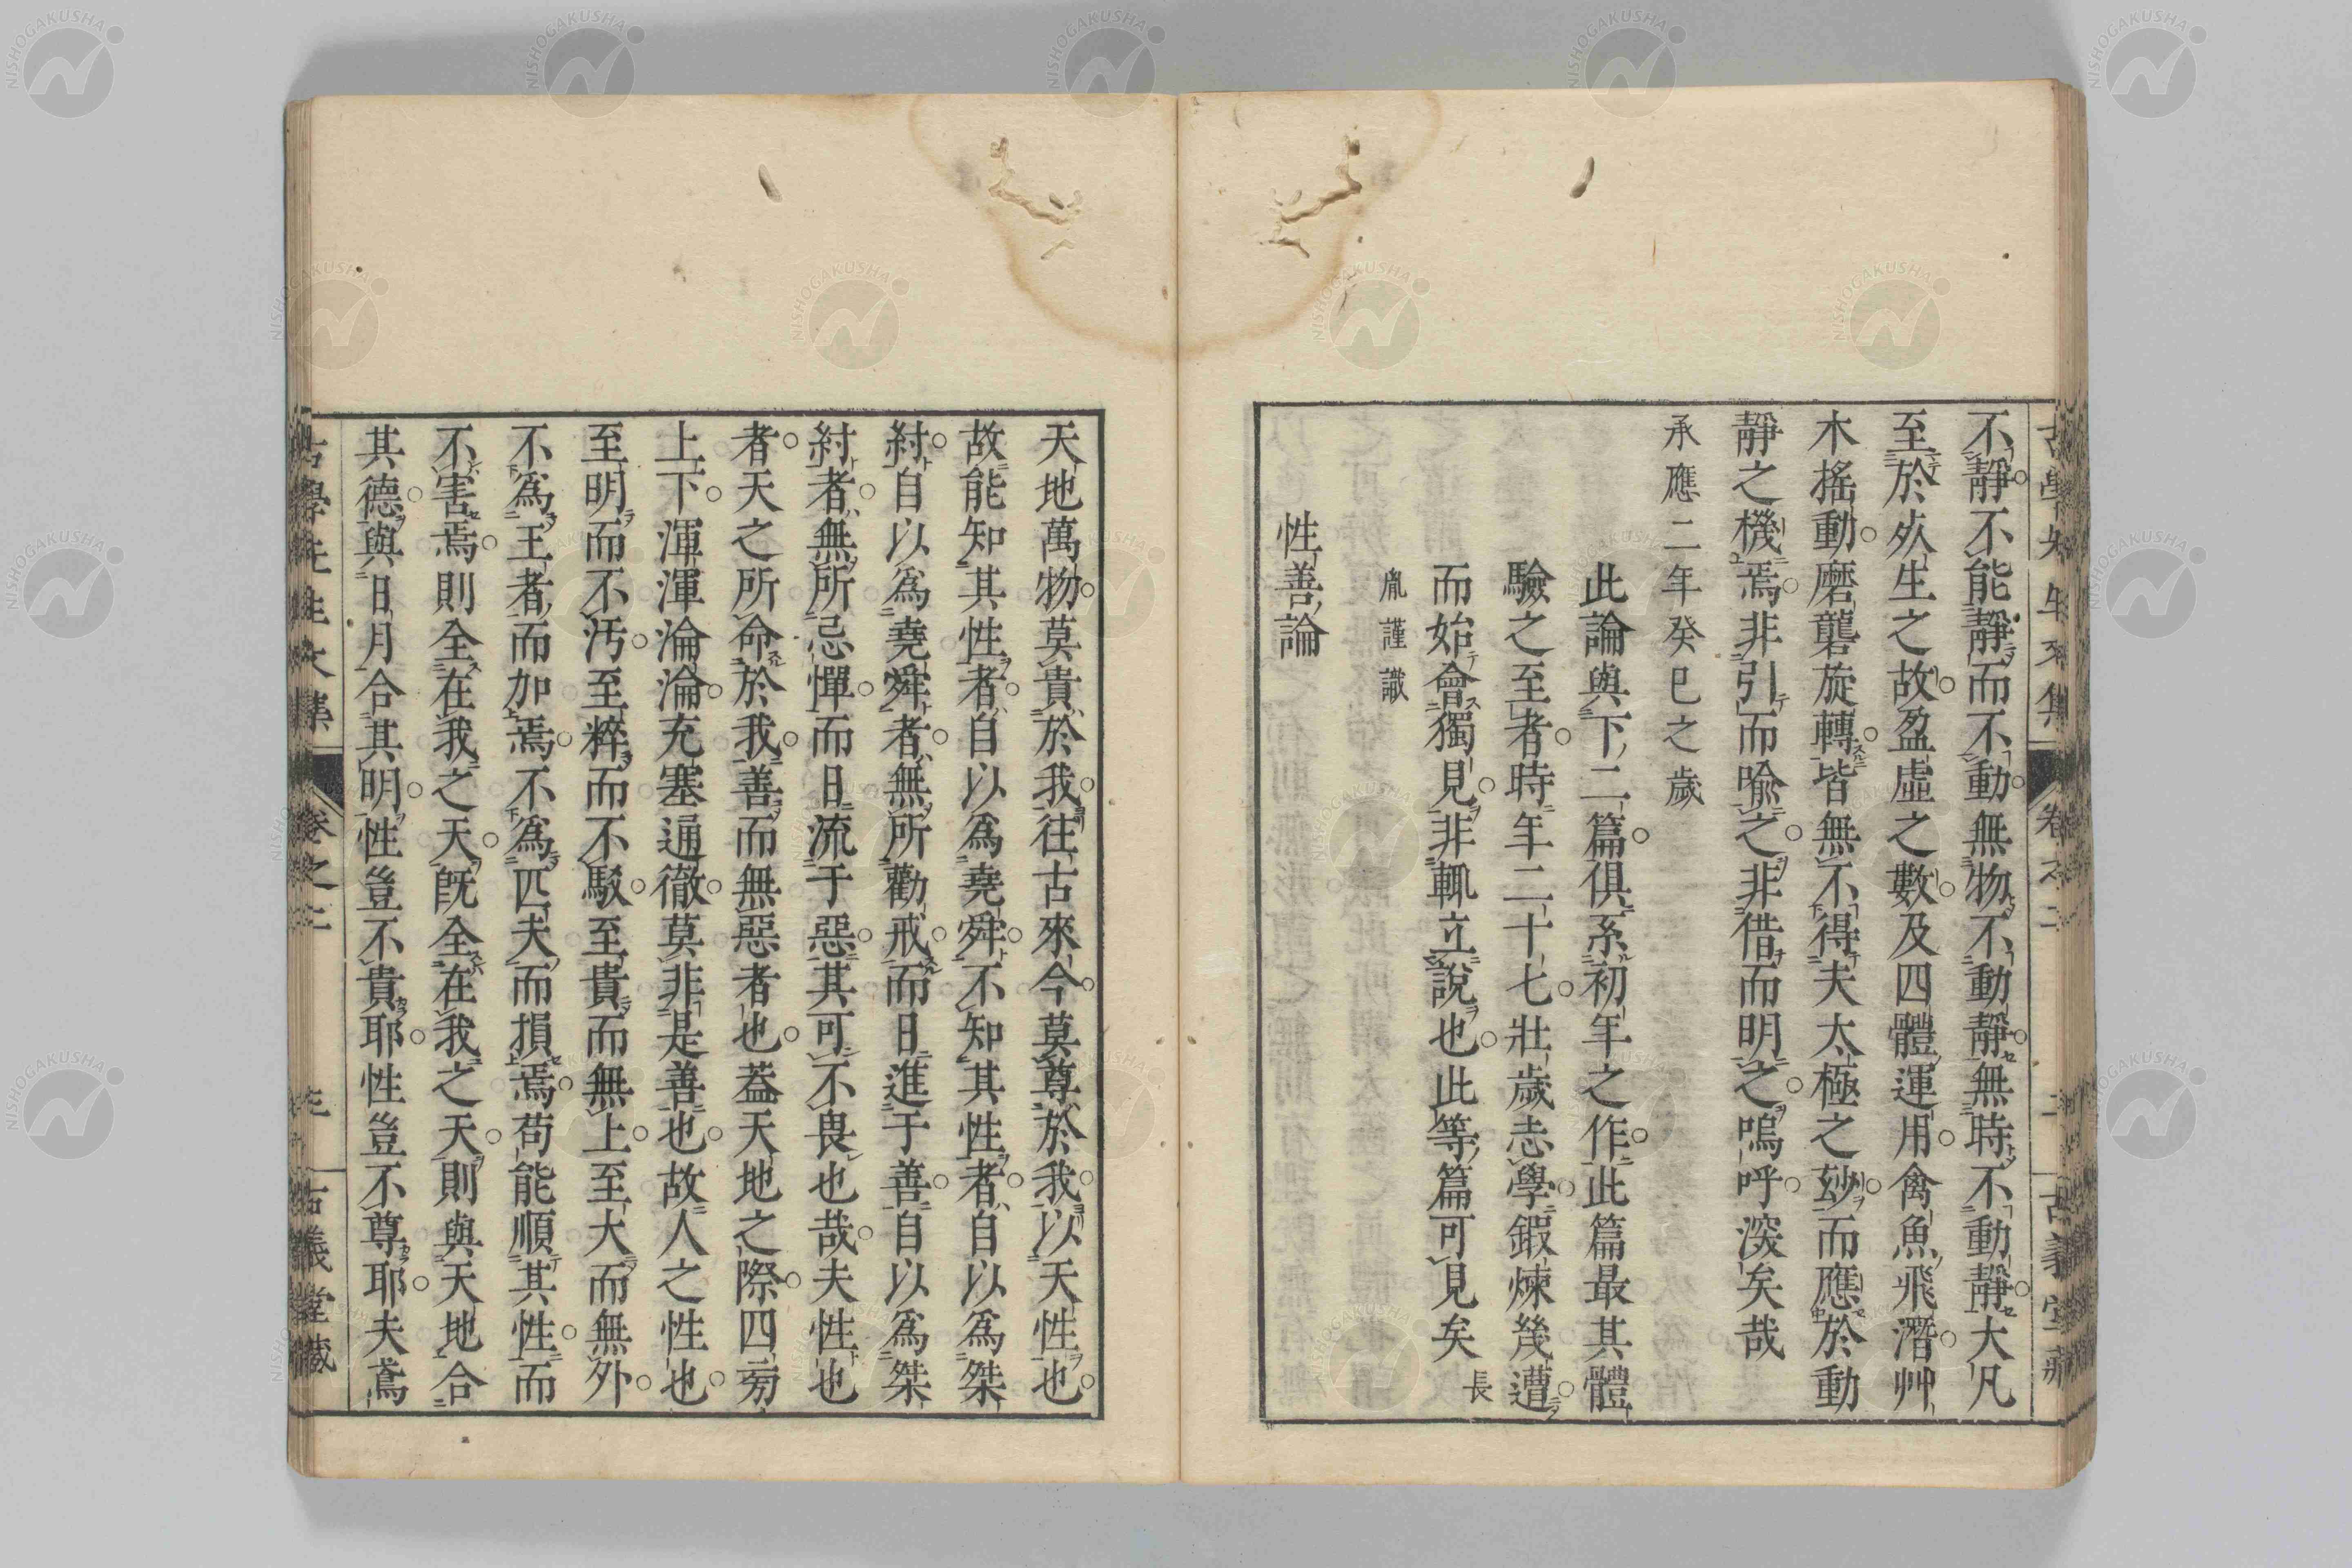 不靜不能靜而不動無物不動靜無時不動靜大凡
至於死生之故盈虛之數及四體運用禽魚飛潛艸
木搖動磨礱旋轉皆無不得夫太極之玅而應於動
靜之機焉非引而喩之非借而明之嗚呼深矣哉
承應二年癸巳之歲
此論與下二篇俱系初年之作此篇最其體
驗之至者時年二十七壯歲志學鍜煉幾遭
而始會獨見非輒立說也此等篇可見矣 長
胤謹識
性善論
天地萬物莫貴於我往古來今莫尊於我以天性也
故能知其性者自以爲堯舜不知其性者自以爲桀
紂自以爲堯舜者無所勸戒而日進于善自以爲桀
紂者無所忌憚而日流于惡其可不畏也哉夫性也
者天之所命於我善而無惡者也葢天地之際四旁
上下渾渾淪淪充塞通徹莫非是善也故人之性也
至明而不汚至粹而不駁至貴而無上至大而無外
不爲王者而加焉不爲匹夫而損焉苟能順其性而
不害焉則全在我之天旣全在我之天則與天地合
其德與日月合其明性豈不貴耶性豈不尊耶夫鳶
古學先生文集 卷之二 古義堂藏
NISHOGAKUSHA